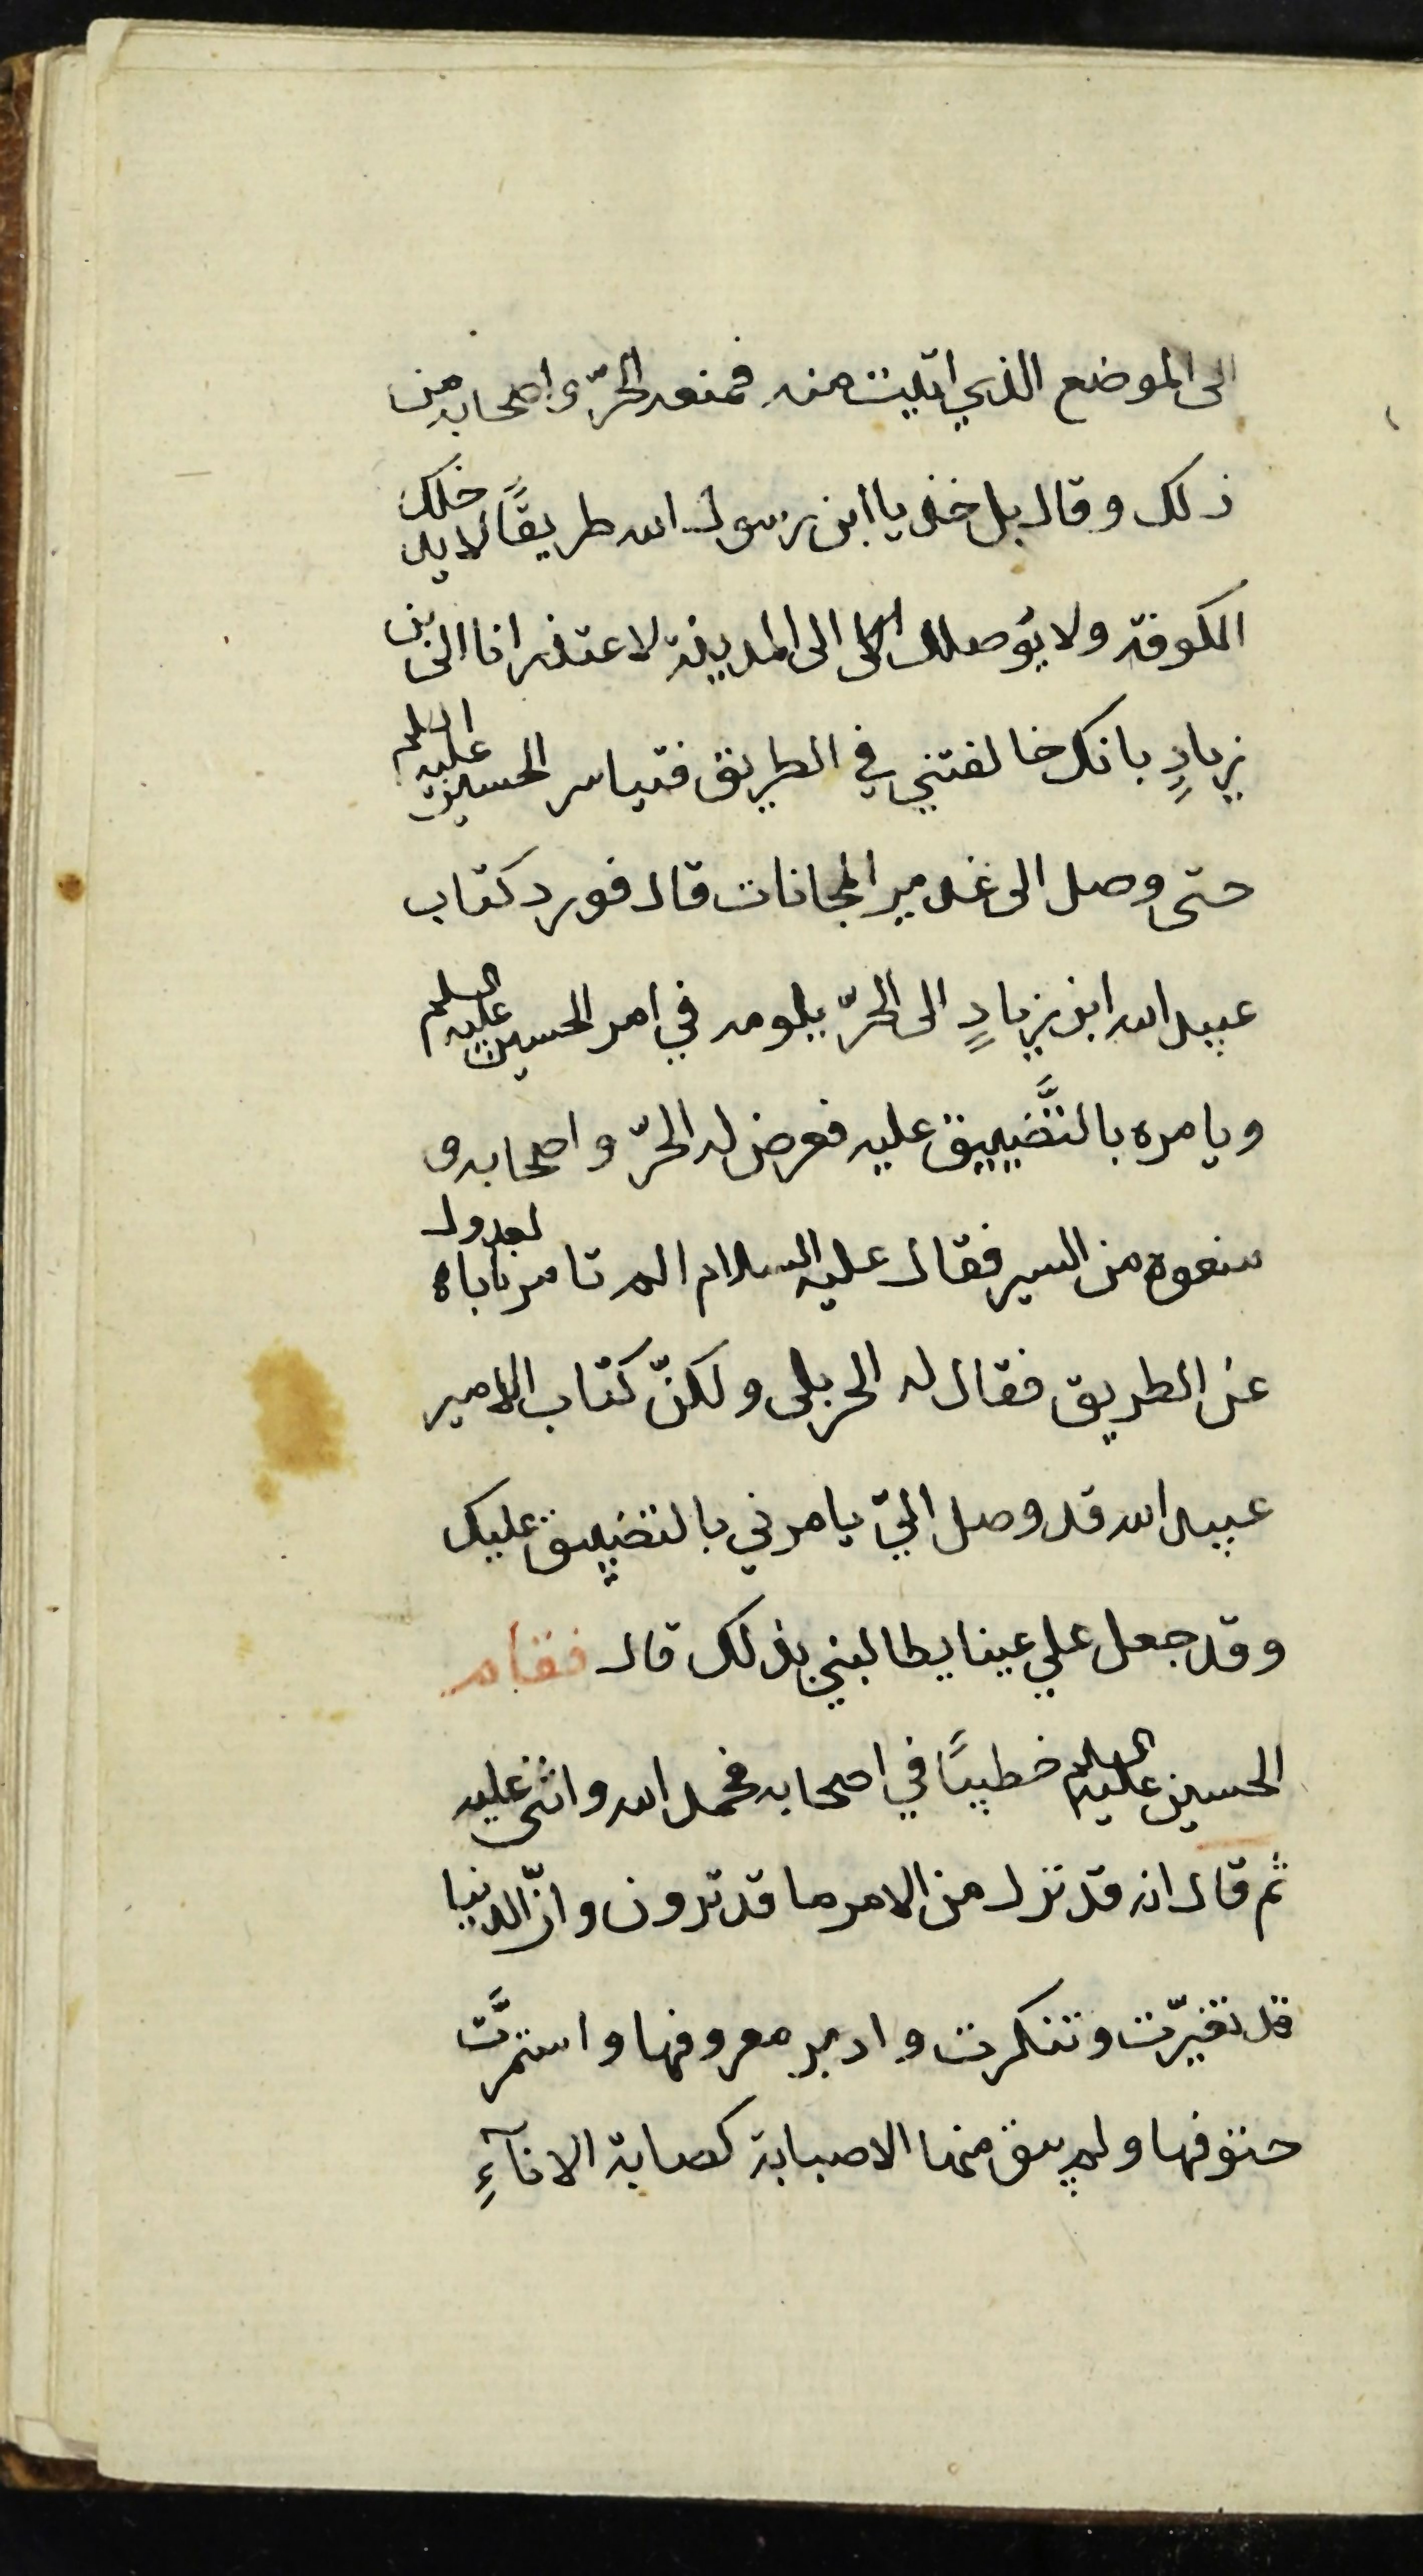 الى الموضع الذي اتيت منه فمنعه الحرّ واصحابه من
ذلك وقال بل خذ يا ابن رسول الله طريقًا لا يدخلك
الكوفة ولا يوصلك الى المدينة لاعتذر انا الى ابن
زيادٍ بانك خالفتني في الطريق فتياسر الحسين عليه السلم
حتى وصل الى غدير الهجانات قال فورد كتاب
عبيد الله ابن زيادٍ الى الحرّ يلومه في امر الحسين عليه السلم
ويامره بالتَّضييق عليه فعرض له الحرّ واصحابه و
منعوه من السير فقال عليه السلام الم تامرنا بالعدول
عن الطريق فقال له الحر بلى ولكنّ كتاب الامير
عبيد الله قد وصل اليّ يامرني بالتضييق عليك
وقد جعل علي عينا يطالبني بذلك قال فقام
الحسين عليه السلم خطيبًا في اصحابه فحمد الله واثنى عليه
ثم قال انه قد نزل من الامر ما قد ترون وانّ الدنيا
قد تغيّرت وتنكرت وادبر معروفها واستمرَّت
حتوفها ولم يبق منها الا صبابة كصبابة الانآءِ